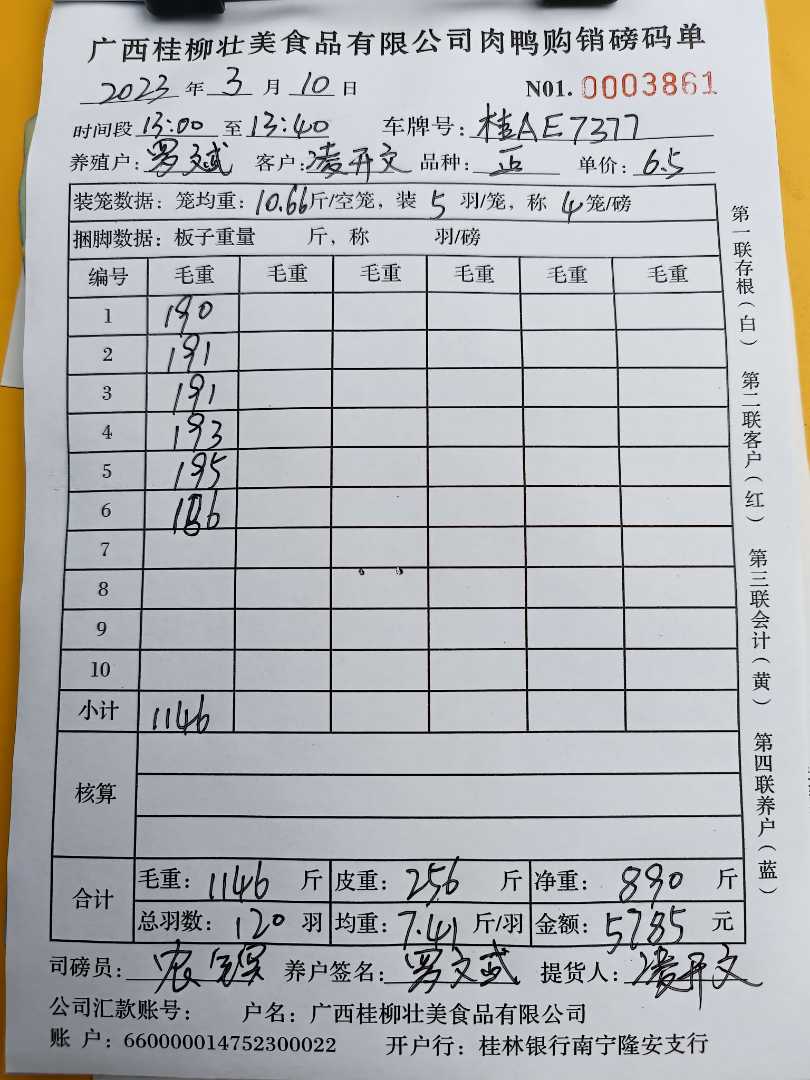 广西桂柳壮美食品有限公司肉鸭购销磅码单
2023 年 3 月 10 日 N01. 0003861
时间段 13:00 至 13:40 车牌号: 桂AE7377
养殖户: 罗文斌 客户: 凌开文 品种: 正 单价: 6.5
装笼数据: 笼均重: 10.66 斤/空笼, 装 5 羽/笼, 称 4 笼/磅
捆脚数据: 板子重量 斤, 称 羽/磅
编号 毛重 毛重 毛重 毛重 毛重 毛重
1 190
2 191
3 191
4 193
5 195
6 186
7
8
9
10
小计 1146
核算
合计 毛重: 1146 斤 皮重: 256 斤 净重: 890 斤
总羽数: 120 羽 均重: 7.41 斤/羽 金额: 5785 元
司磅员: 农 养户签名: 罗文斌 提货人: 凌开文
公司汇款账号: 户名: 广西桂柳壮美食品有限公司
账 户: 660000014752300022 开户行: 桂林银行南宁隆安支行
第一联存根(白) 第二联客户(红) 第三联会计(黄) 第四联养户(蓝)